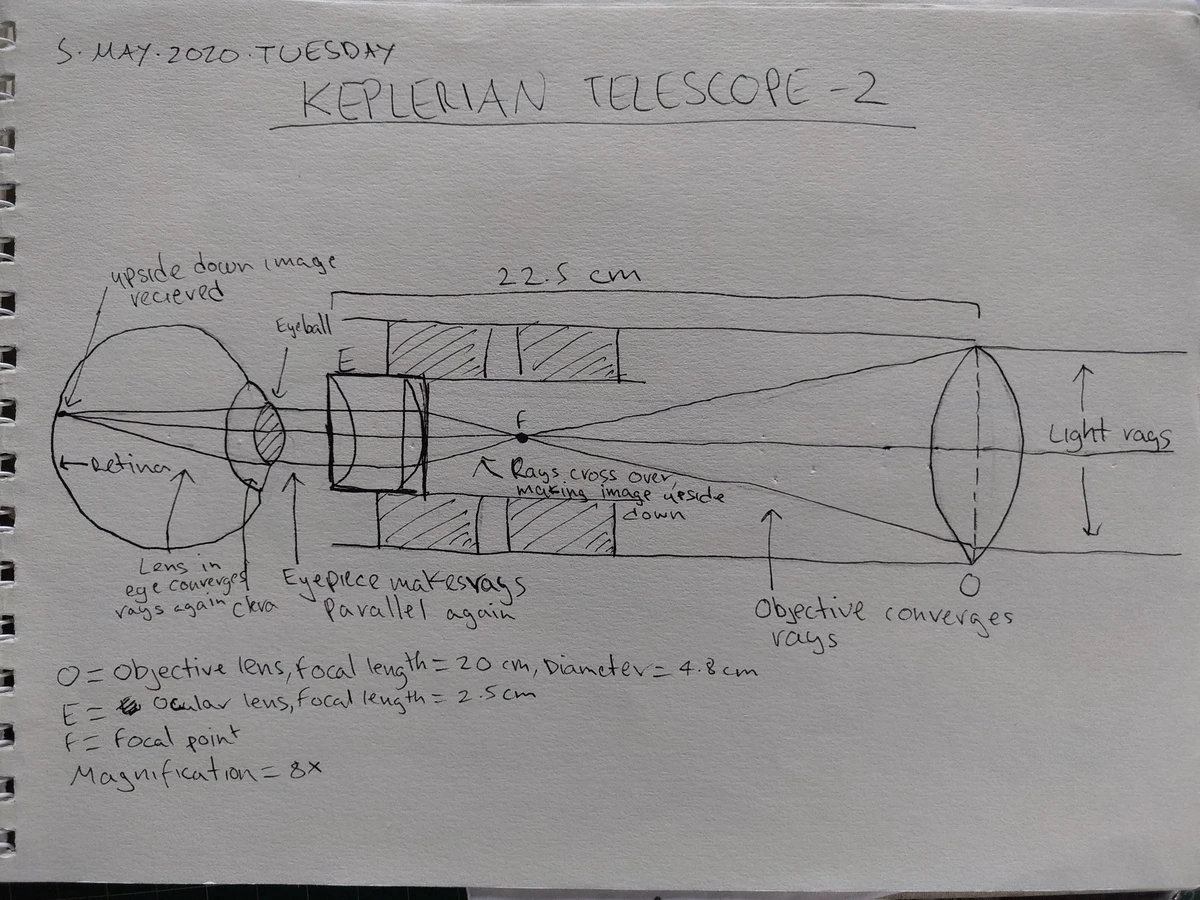 5. MAY. 2020. TUESDAY
KEPLERIAN TELESCOPE - 2
upside down image
recieved
22.5 cm
Eyeball
E
F
Light rays
Retina
Rays cross over,
making image upside
down
Lens in
eye converges
rays again
Eyepiece makes rays
Parallel again
O
Objective converges
rays
O = Objective lens, focal length = 20 cm, Diameter = 4.8 cm
E = Ocular lens, focal length = 2.5 cm
F = Focal point
Magnification = 8x